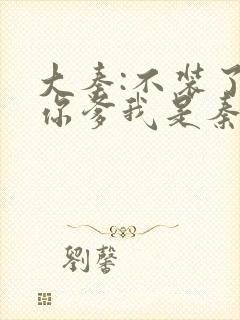 大秦:不装了
你爹我是秦
劉馨